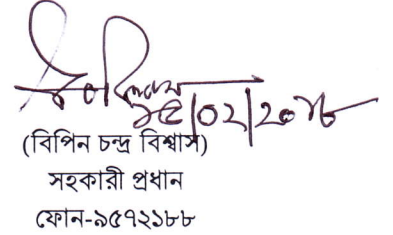 ১৫/০২/২০১৮
(বিপিন চন্দ্র বিশ্বাস)
সহকারী প্রধান
ফোন-৯৫৭২১৮৮